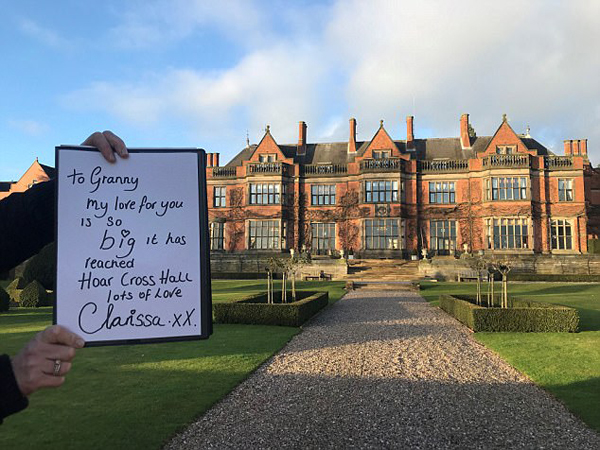 to Granny
my love for you
is so
big it has
reached
Hoar Cross Hall
lots of love
Clarissa.xx.